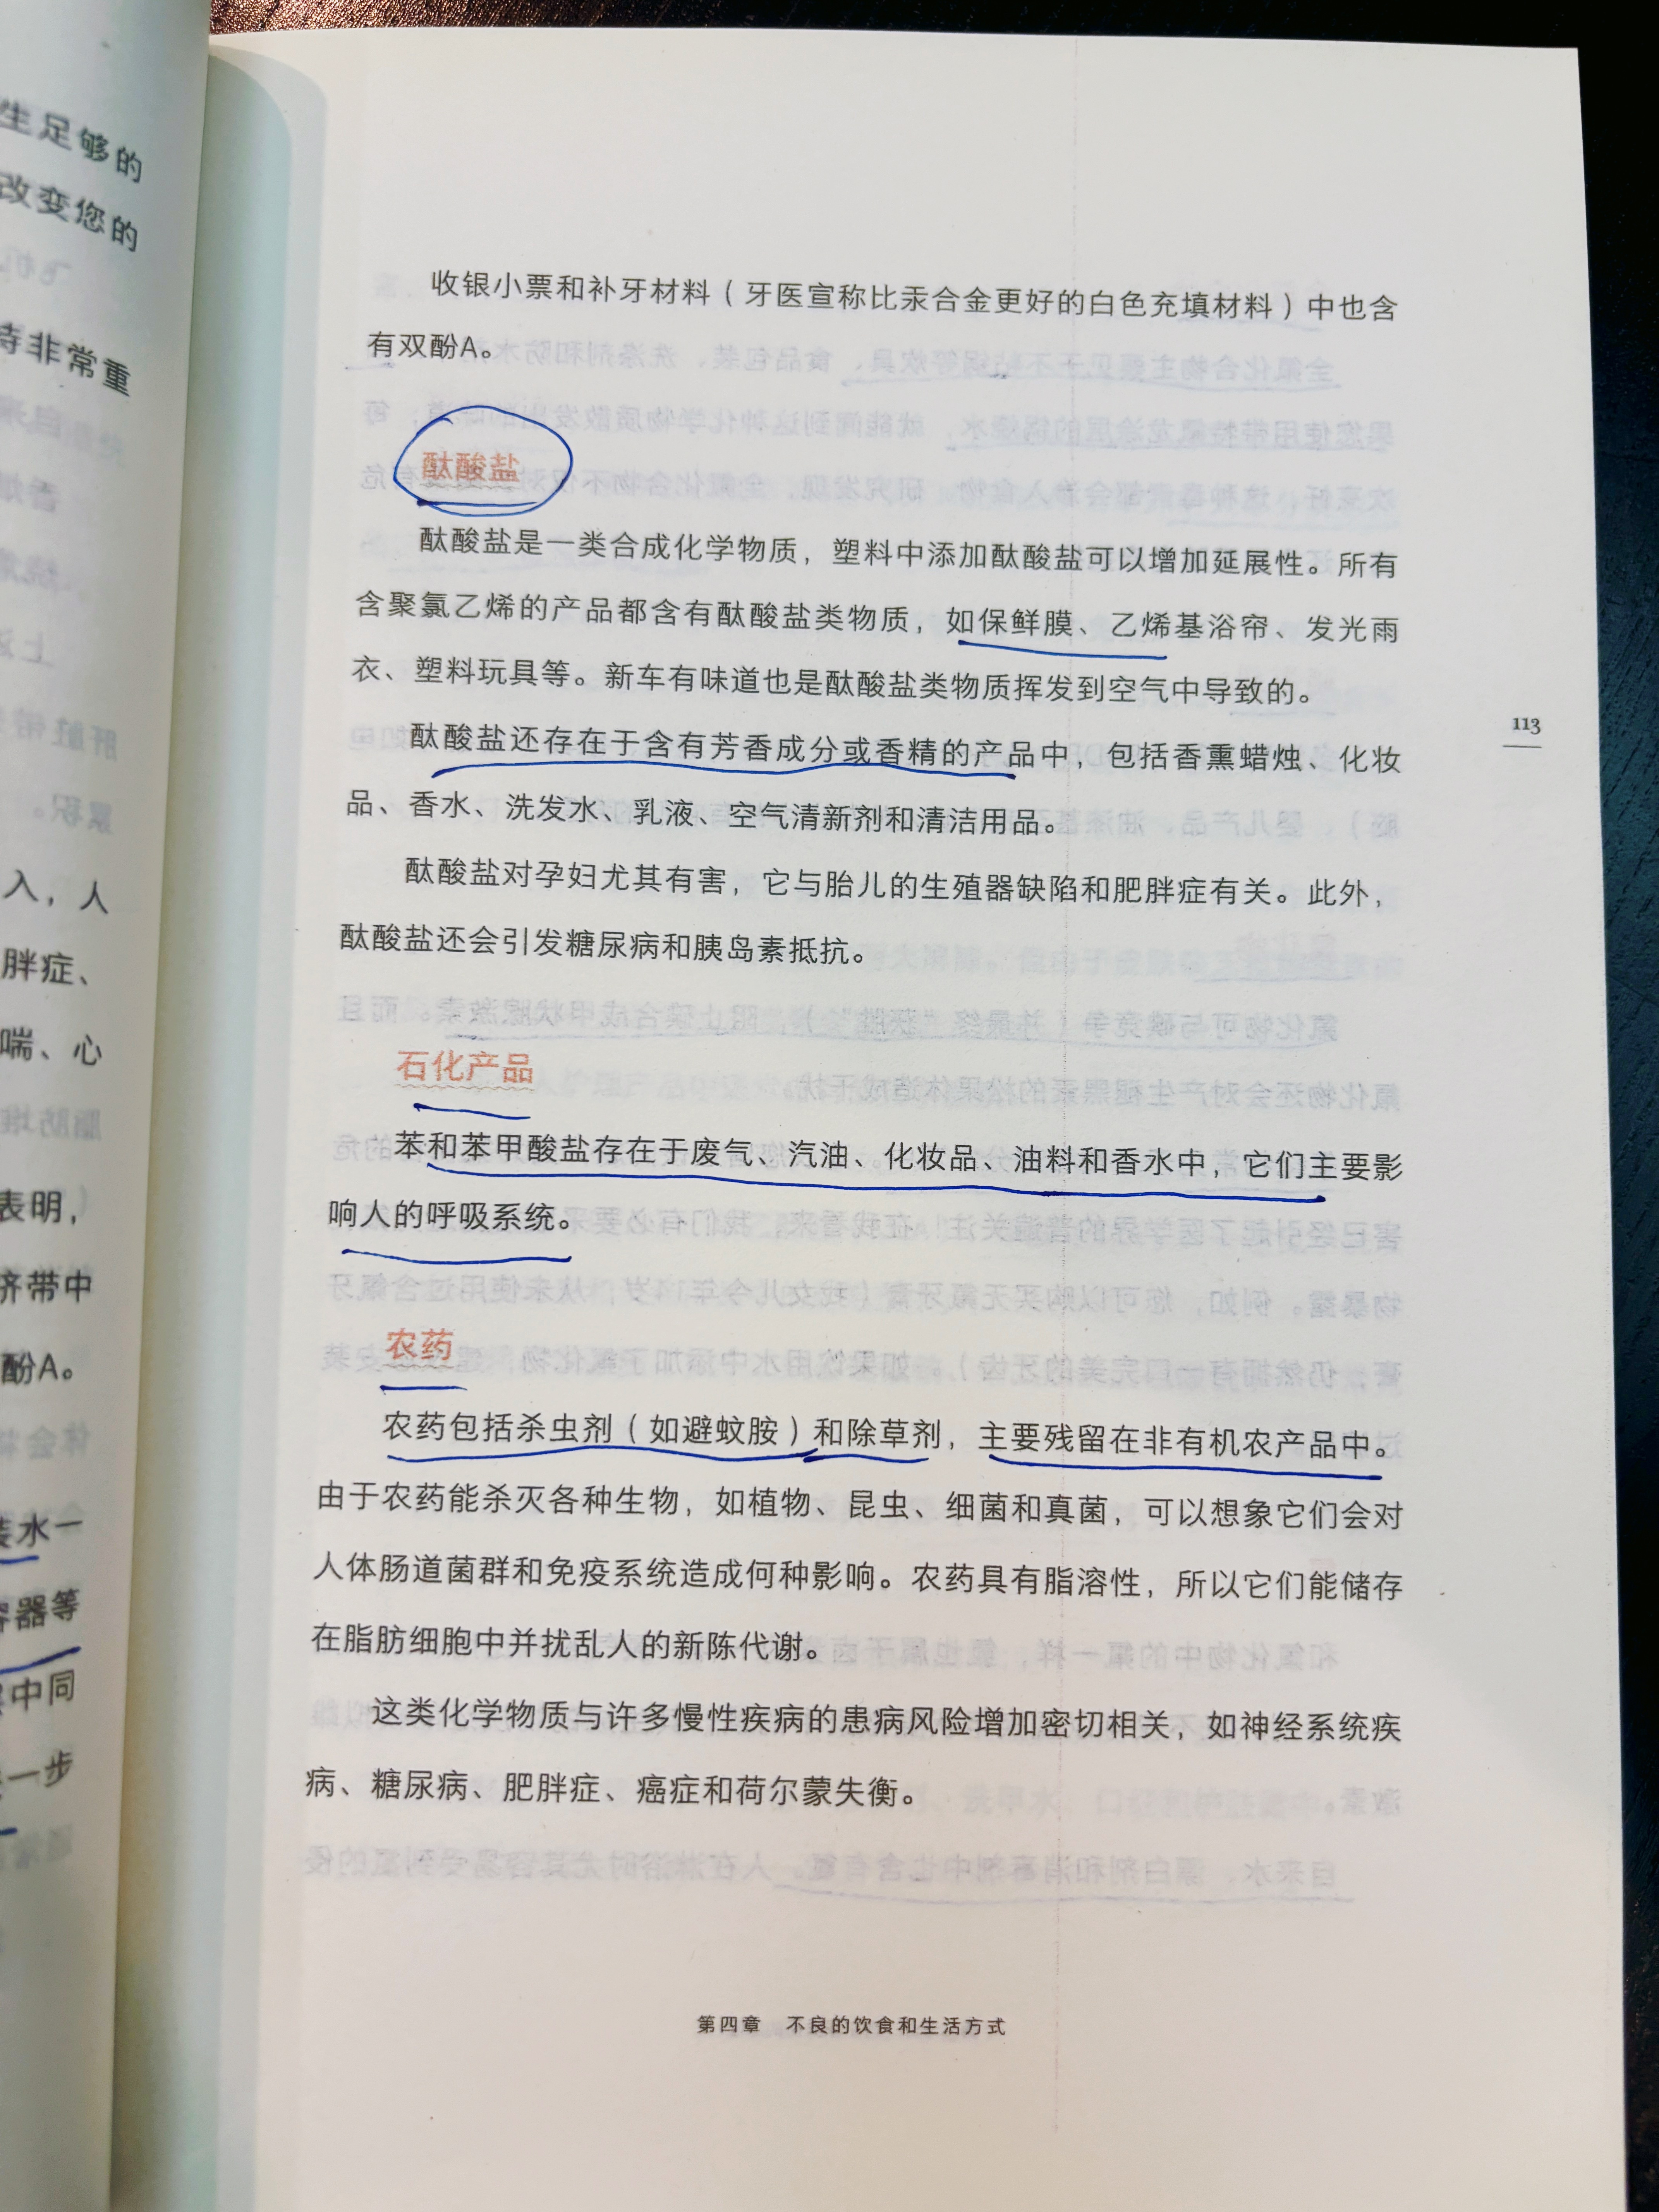 生足够的
改变您的
非常重
入，人
胖症、
喘、心
表明，
脐带中
酚A。
水一
容器等
中同
一步
收银小票和补牙材料（牙医宣称比汞合金更好的白色充填材料）中也含
有双酚A。
酞酸盐
酞酸盐是一类合成化学物质，塑料中添加酞酸盐可以增加延展性。所有
含聚氯乙烯的产品都含有酞酸盐类物质，如保鲜膜、乙烯基浴帘、发光雨
衣、塑料玩具等。新车有味道也是酞酸盐类物质挥发到空气中导致的。
酞酸盐还存在于含有芳香成分或香精的产品中，包括香熏蜡烛、化妆
品、香水、洗发水、乳液、空气清新剂和清洁用品。
酞酸盐对孕妇尤其有害，它与胎儿的生殖器缺陷和肥胖症有关。此外，
酞酸盐还会引发糖尿病和胰岛素抵抗。
石化产品
苯和苯甲酸盐存在于废气、汽油、化妆品、油料和香水中，它们主要影
响人的呼吸系统。
农药
农药包括杀虫剂（如避蚊胺）和除草剂，主要残留在非有机农产品中。
由于农药能杀灭各种生物，如植物、昆虫、细菌和真菌，可以想象它们会对
人体肠道菌群和免疫系统造成何种影响。农药具有脂溶性，所以它们能储存
在脂肪细胞中并扰乱人的新陈代谢。
这类化学物质与许多慢性疾病的患病风险增加密切相关，如神经系统疾
病、糖尿病、肥胖症、癌症和荷尔蒙失衡。
113
第四章 不良的饮食和生活方式